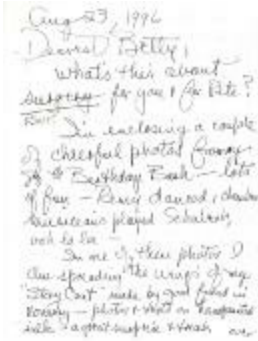 Aug 23, 1996
Dearest Betty,
What's this about
surgery for you & for Pete?
I'm enclosing a couple
of cheerful photos from
Birthday Bash — lots
of fun — danced,
musicians played
ooh la la —
In one of these photos I
am spreading the wings of my
"Story Coat" made by good friend in
— photos &
silk — a great surprise &
over